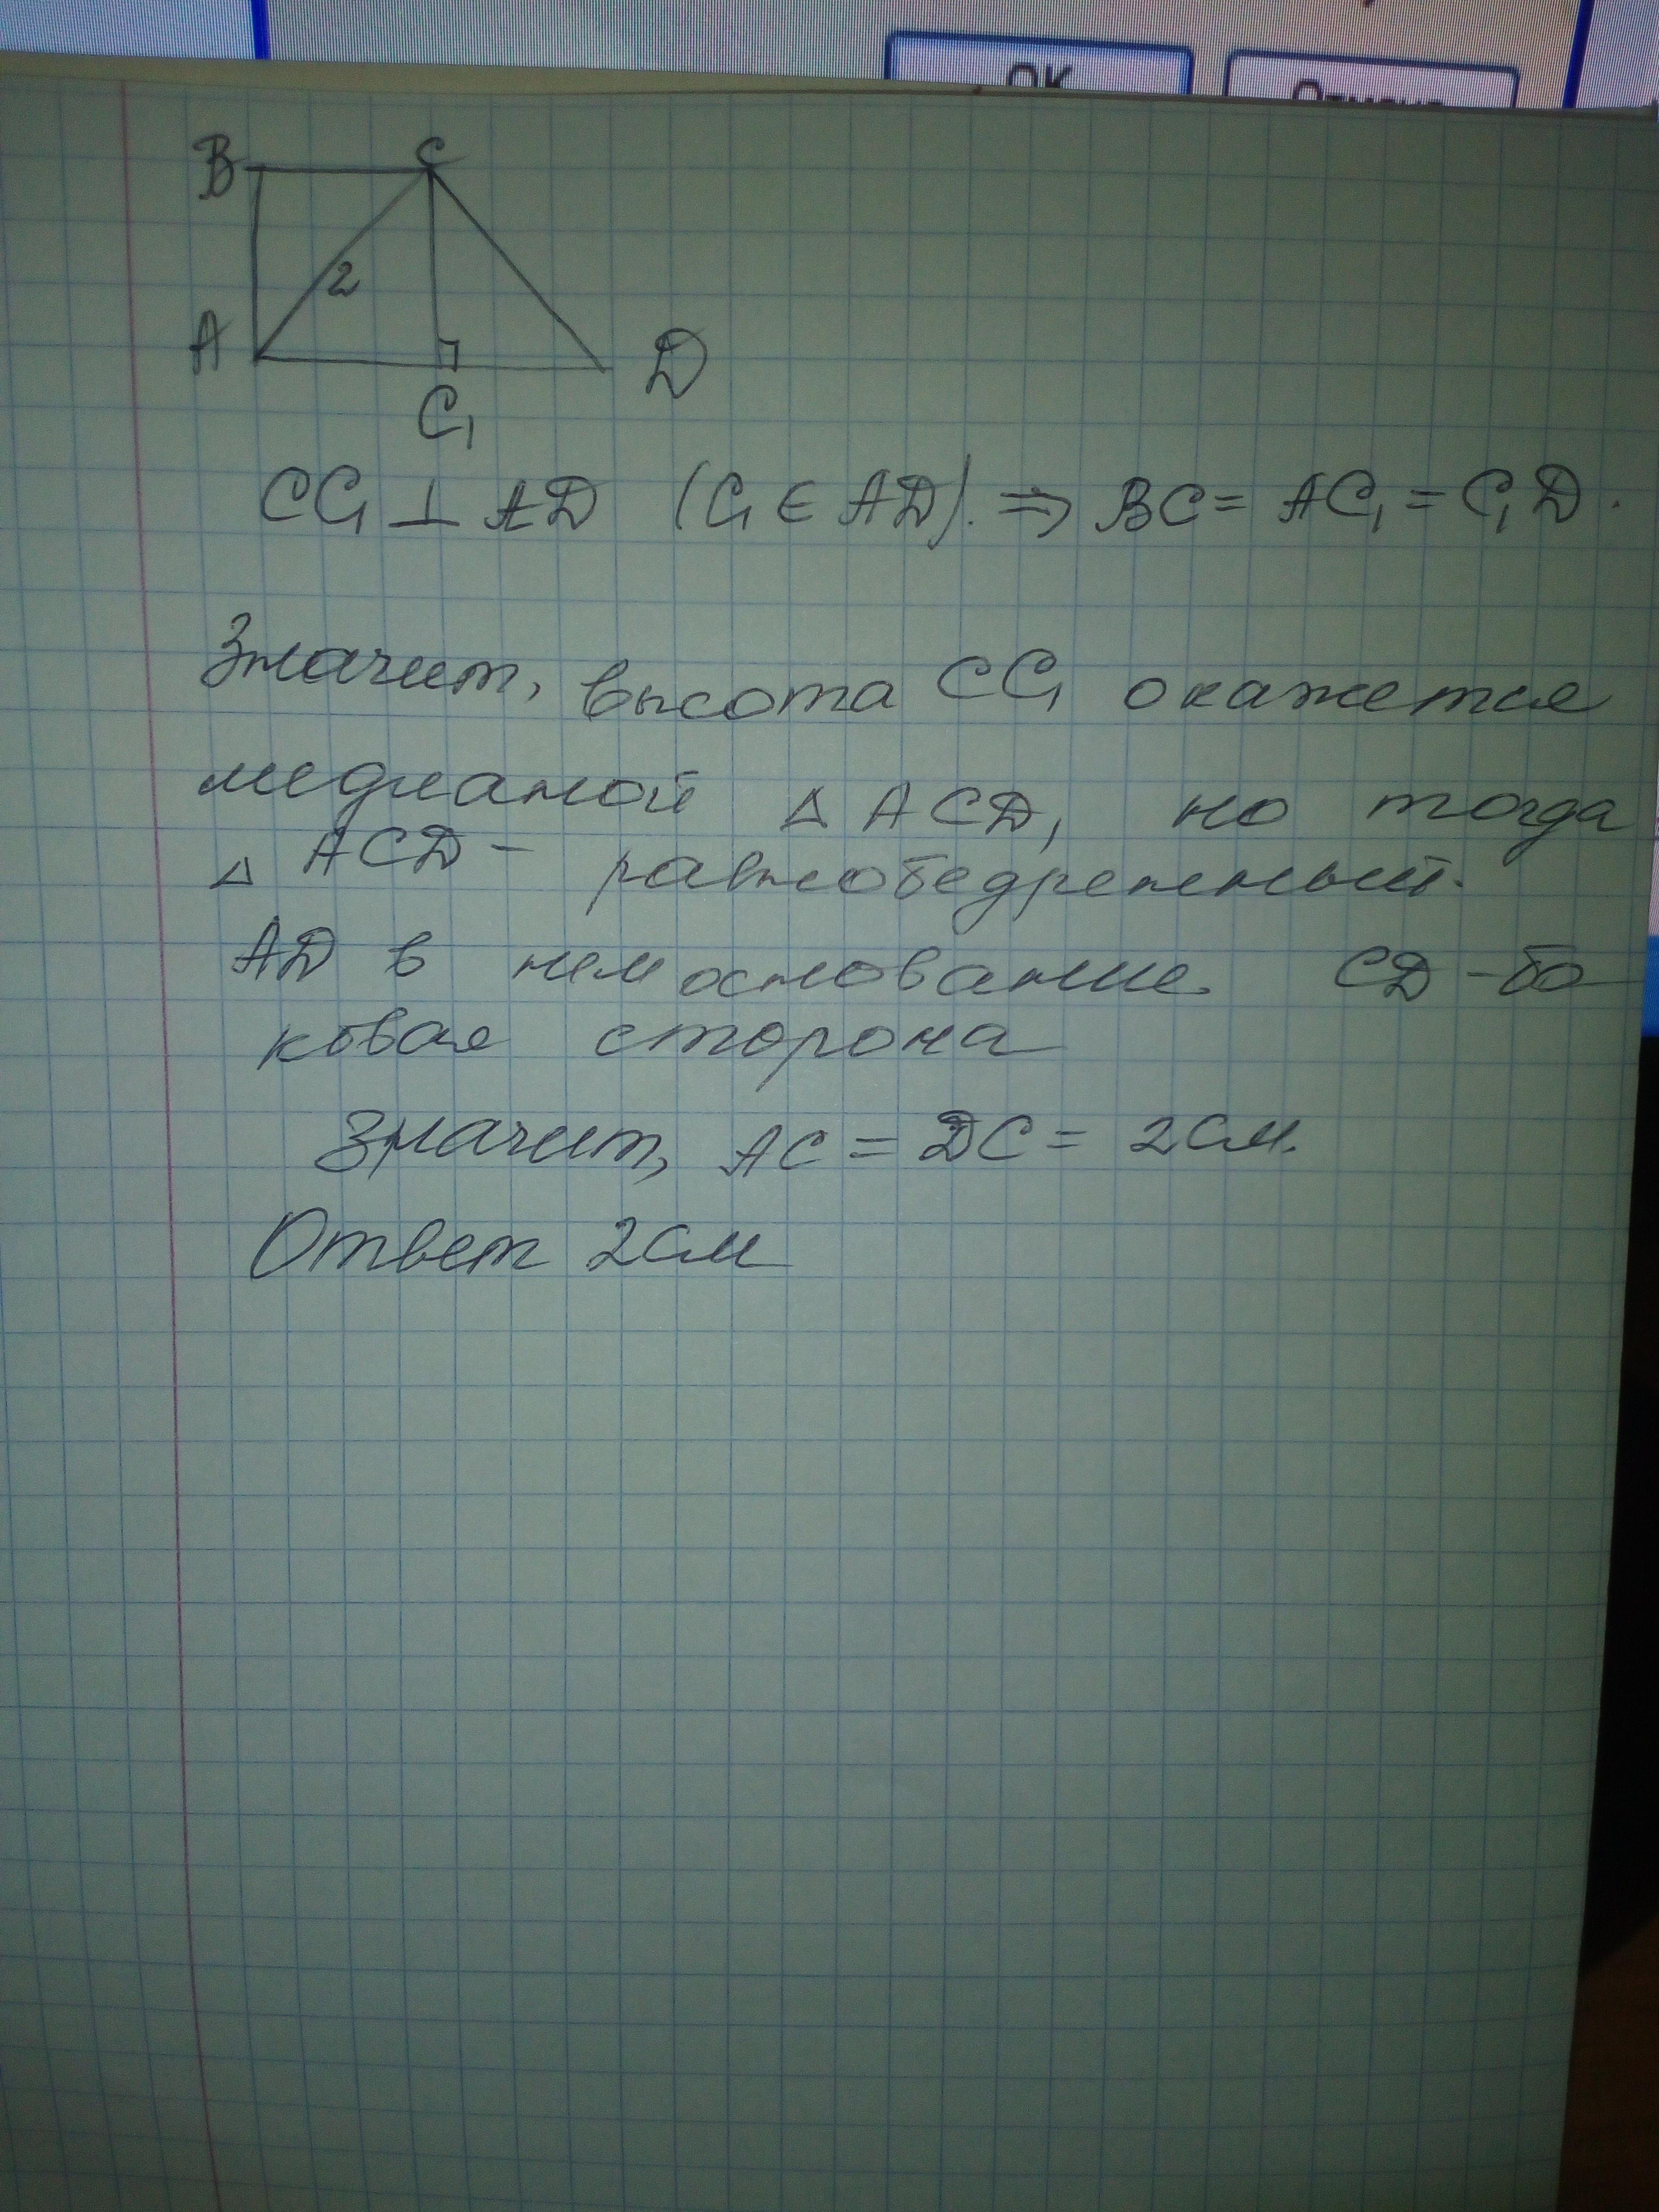 ОК
Отмена
B
C
2
A
D
C₁
CC₁ ⊥ AD (C₁ ∈ AD). ⇒ BC = AC₁ = C₁D.
Значит, высота CC₁ окажется
медианой △ ACD, но тогда
△ ACD – равнобедренный.
AD в нем основание. CD – бо-
ковая сторона
Значит, AC = DC = 2см.
Ответ 2см